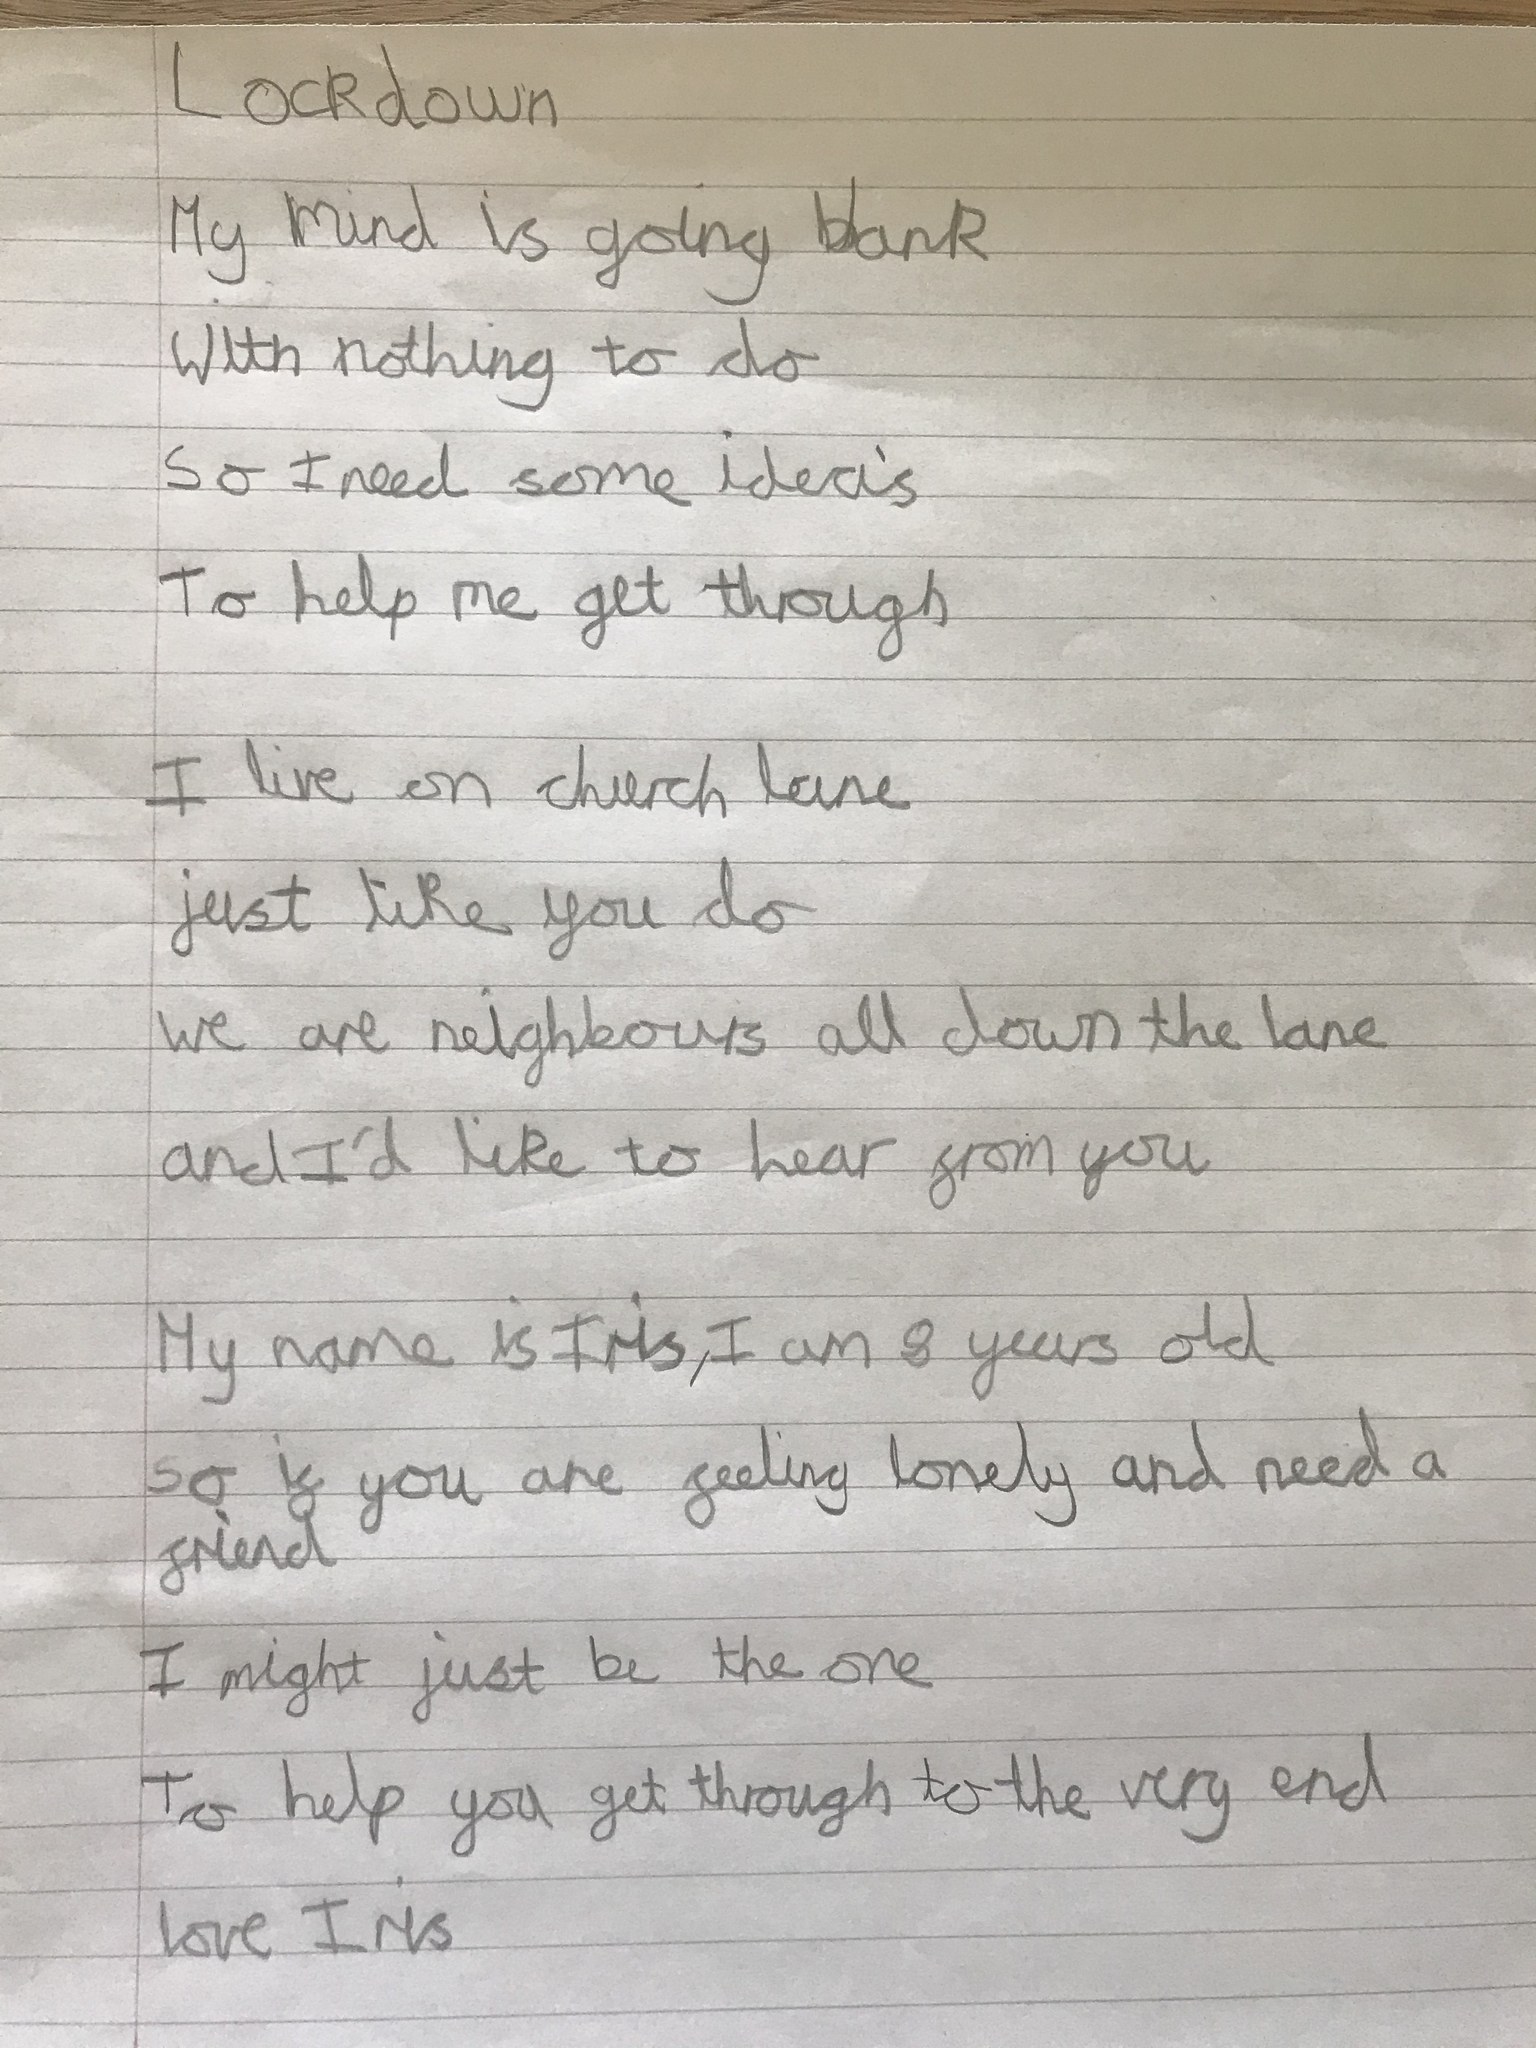 Lockdown
My mind is going blank
With nothing to do
So I need some idea's
To help me get through
I live on church lane
just like you do
we are neighbours all down the lane
and I'd like to hear from you
My name is Iris, I am 8 years old
so if you are feeling lonely and need a
friend
I might just be the one
To help you get through to the very end
love Iris